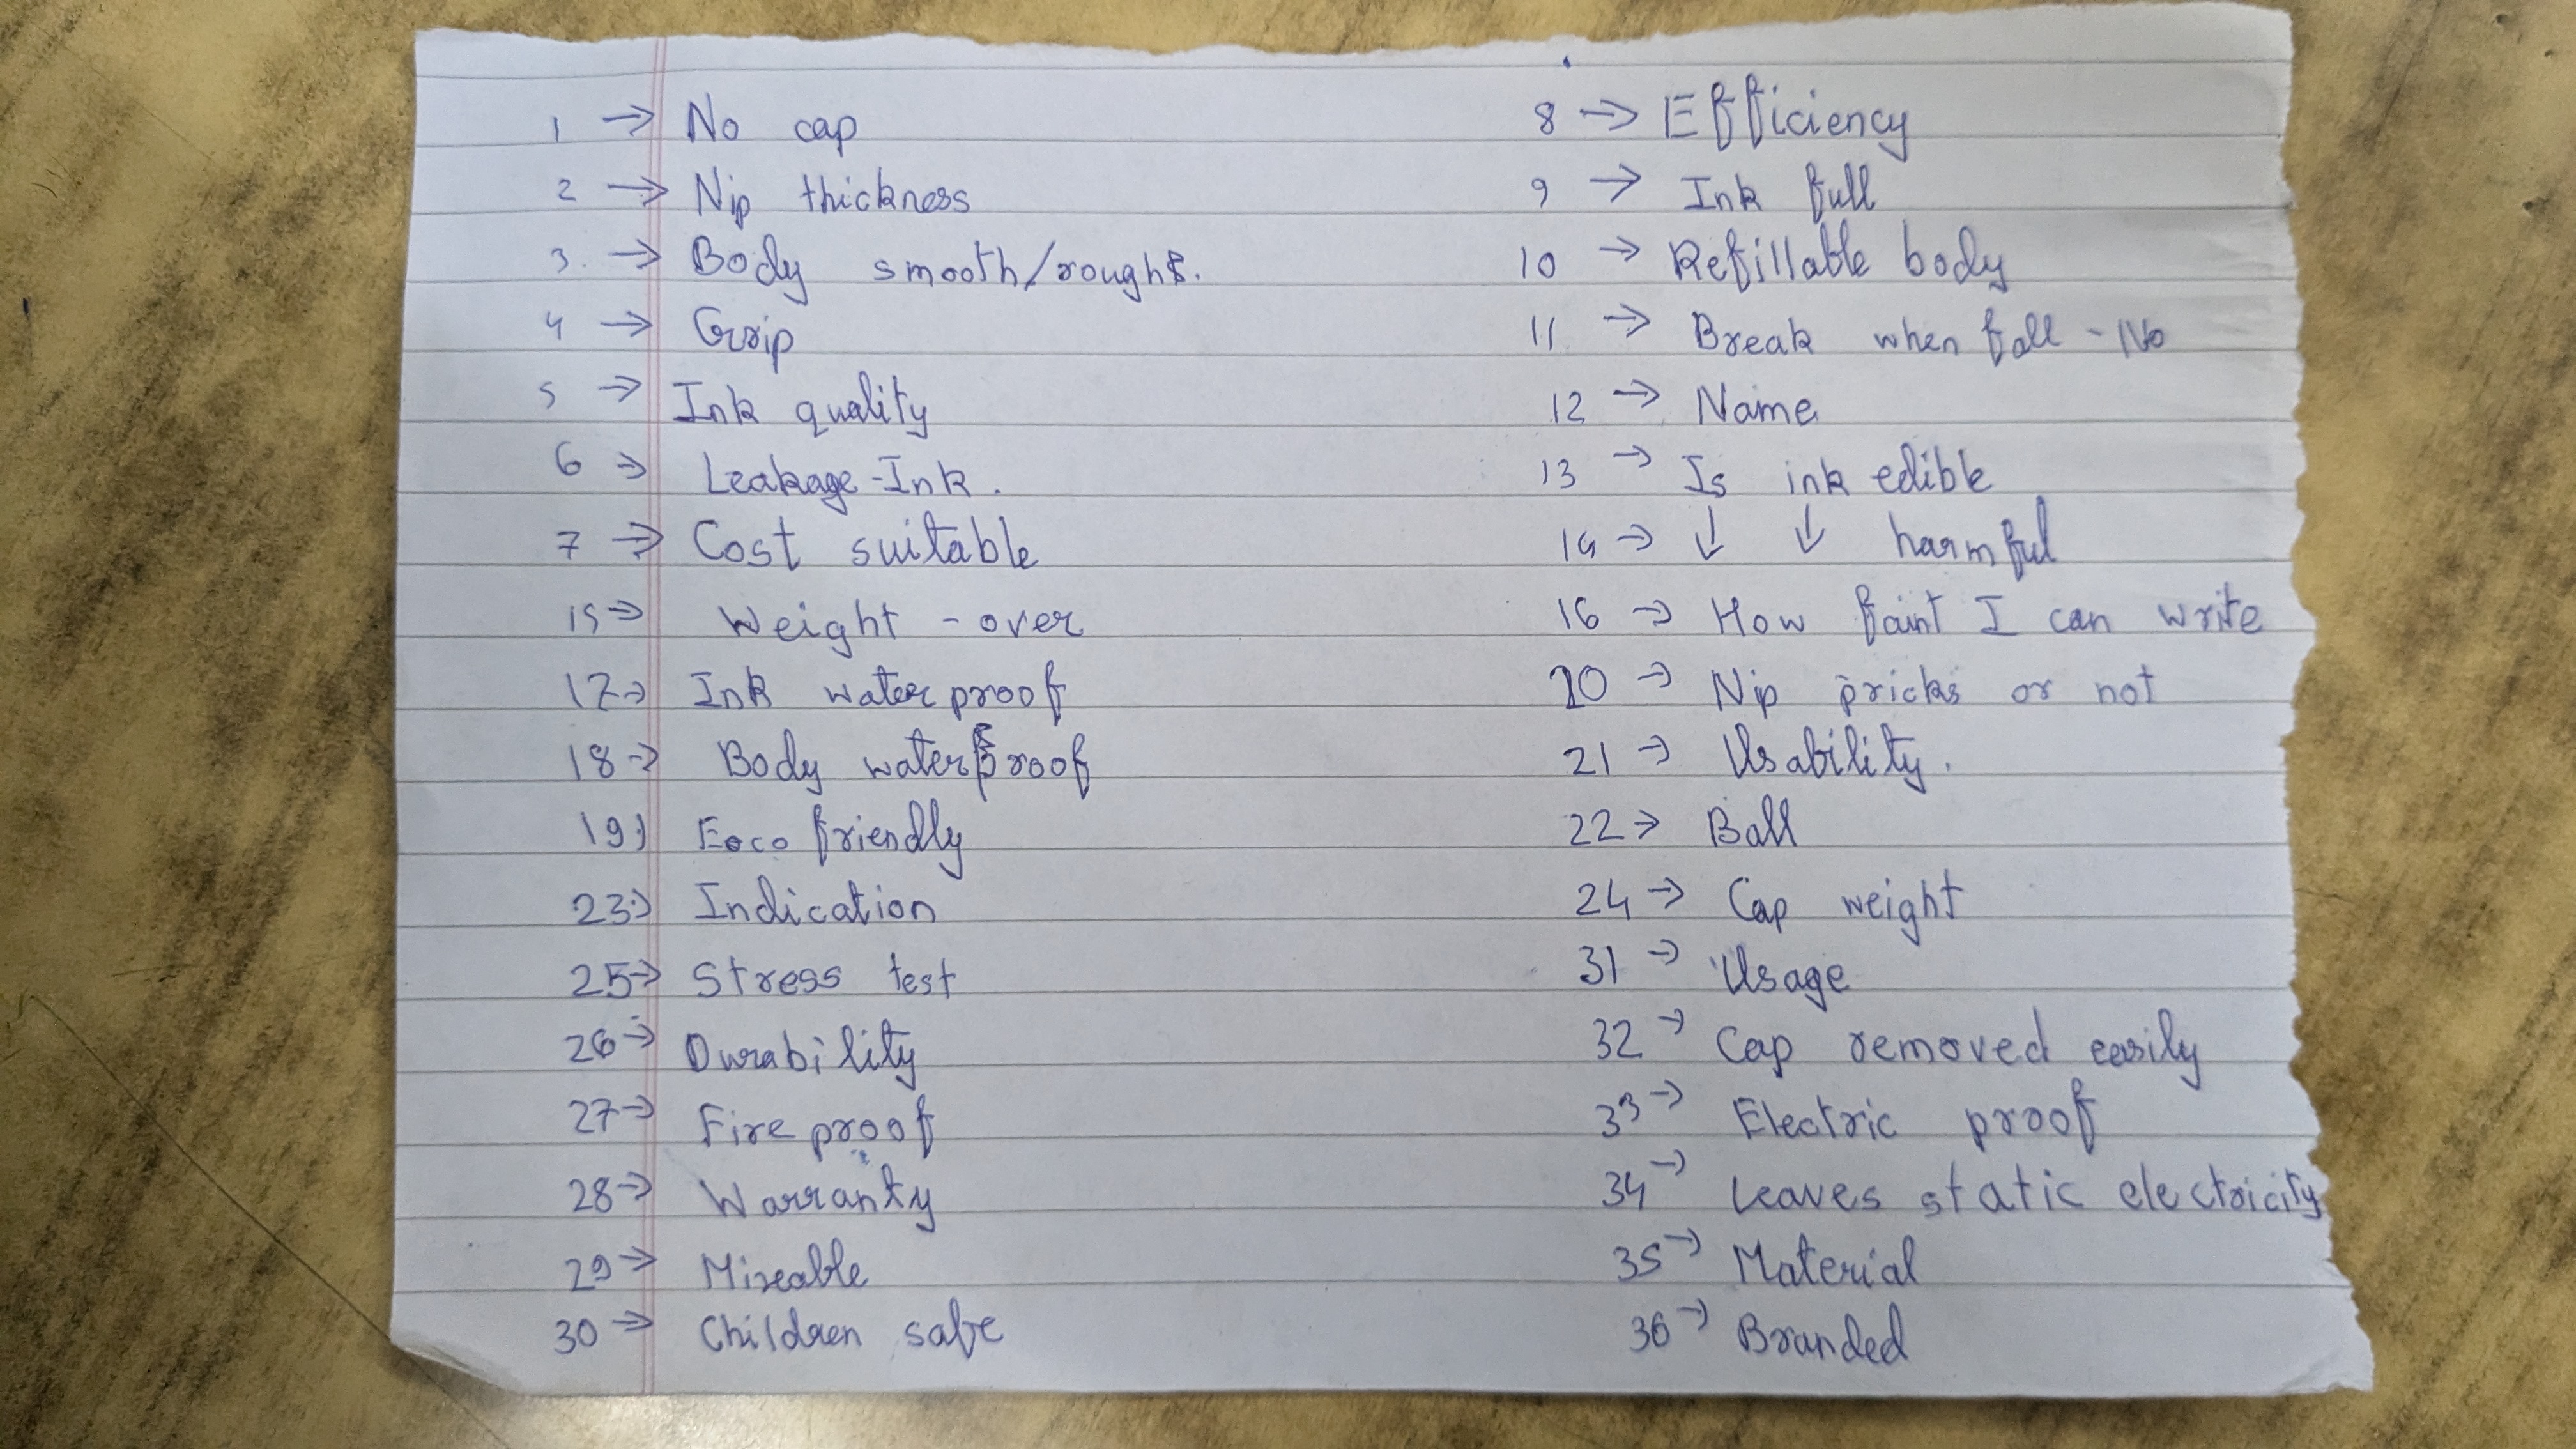 1 → No cap
2 → Nip thickness
3. → Body smooth/rough.
4 → Grip
5 → Ink quality
6 → Leakage-Ink.
7 → Cost suitable
15 → Weight - over
17 → Ink waterproof
18 → Body waterproof
19) Eoco friendly
23:) Indication
25 → Stress test
26 → Durability
27 → Fire proof
28 → Warranty
29 → Mixeable
30 → Children safe
8 → Efficiency
9 → Ink full
10 → Refillable body
11 → Break when fall - No
12 → Name
13 → Is ink edible
14 → ↓ ↓ harmful
16 → How faint I can write
20 → Nip pricks or not
21 → Usability.
22 → Ball
24 → Cap weight
31 → Usage
32 → Cap removed easily
33 → Electric proof
34 → Leaves static electricity
35 → Material
36 → Branded